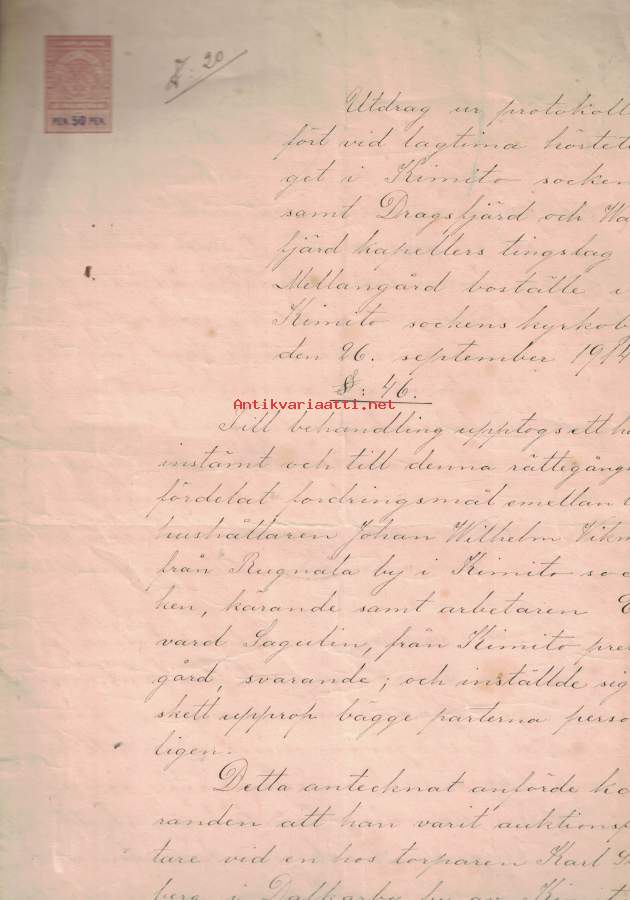 PEN. 50 PEN.
20
Utdrag ur protokoll
fört vid lagtima höstet
get i Kimito socken
samt Dragsfjärd och Wa
fjärd kapellers tingslag
Mellangård boställe i
Kimito sockens kyrkob
den 26. september 1914
§: 46.
Antikvariaatti.net
Till behandling upptogs ett h
instämt och till denna rättegång
fördelat fordringsmål emellan
hushållaren Johan Wilhelm Vikm
från Rugnåla by i Kimito soc
ken, kärande samt arbetaren E
vard Sagulin, från Kimito pre
gård, svarande; och inställde sig
skett upprop bägge parterna perso
ligen.
Detta antecknat anförde kä
randen att han varit auktions
tare vid en hos torparen Karl
berg i Dalkarby by av Kimit